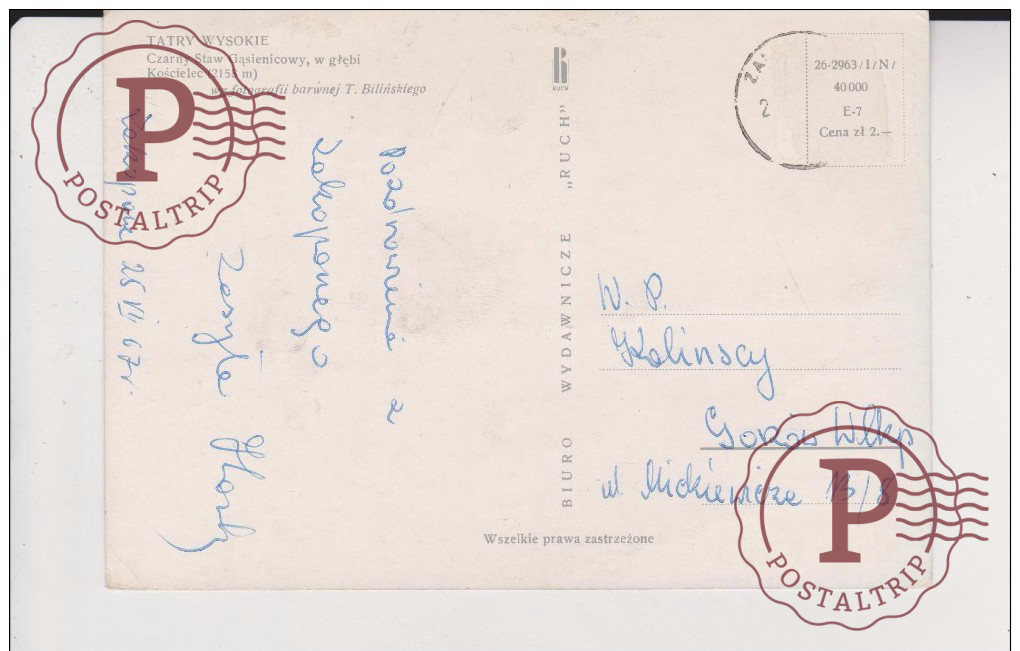 TATRY WYSOKIE
Czarny Staw Gąsienicowy, w głębi
Kościelec (2158 m)
wg fotografii barwnej T. Bilińskiego
Zakopane 25 VII 67 r
Pozdrowienia z
Zakopanego
Zasyła
RUCH
BIURO WYDAWNICZE „RUCH”
ZA
2
26-2963/1/N/
40 000
E-7
Cena zł 2.—
W. P.
Kalinscy
Gorzów Wlkp
ul Mickiewicza 13/8
Wszelkie prawa zastrzeżone
P
POSTALTRIP
P
POSTALTRIP